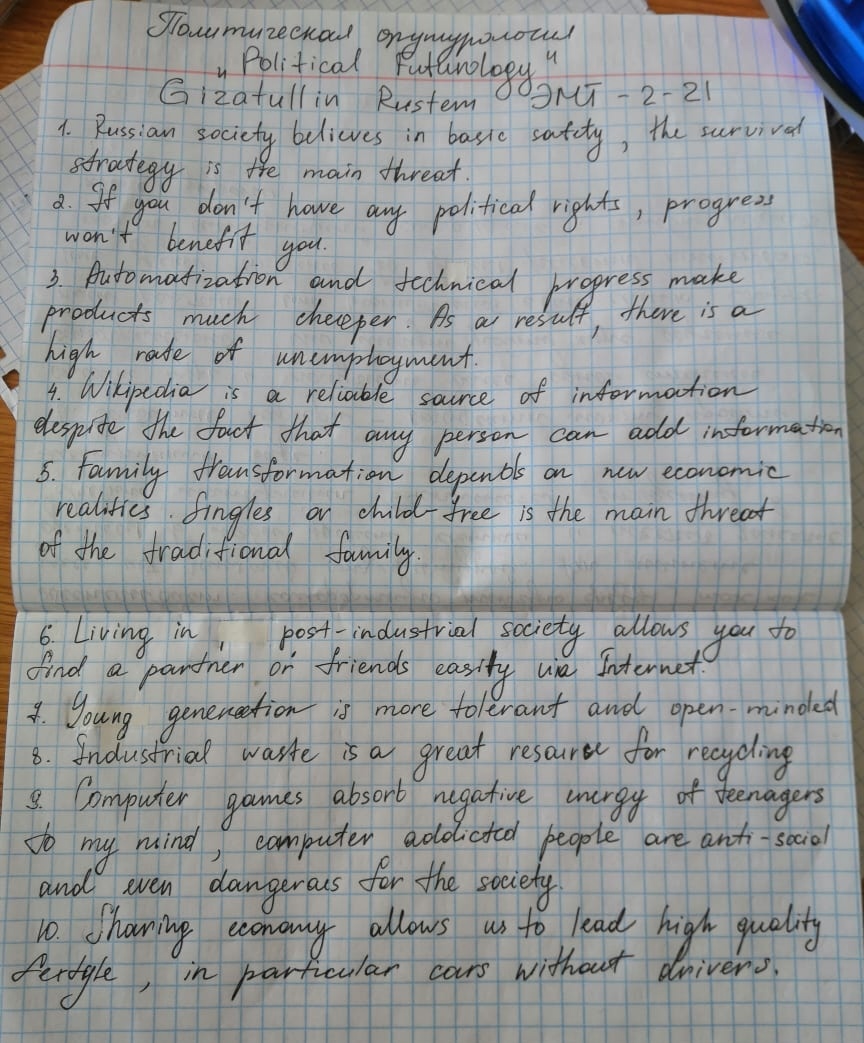 Политическая футурология
"Political Futurology"
Gizatullin Rustem ЭМТ-2-21
1. Russian society believes in basic safety, the survival
strategy is the main threat.
2. If you don't have any political rights, progress
won't benefit you.
3. Automatization and technical progress make
products much cheeper. As a result, there is a
high rate of unemployment.
4. Wikipedia is a reliable source of information
despite the fact that any person can add information
5. Family transformation depends on new economic
realities. Singles or child-free is the main threat
of the traditional family.
6. Living in post-industrial society allows you to
find a partner or friends easity via Internet.
7. Young generation is more tolerant and open-minded
8. Industrial waste is a great resourse for recycling
9. Computer games absorb negative energy of teenagers
to my mind, computer addicted people are anti-social
and even dangerous for the society.
10. Sharing economy allows us to lead high quality
, in particular cars without drivers.